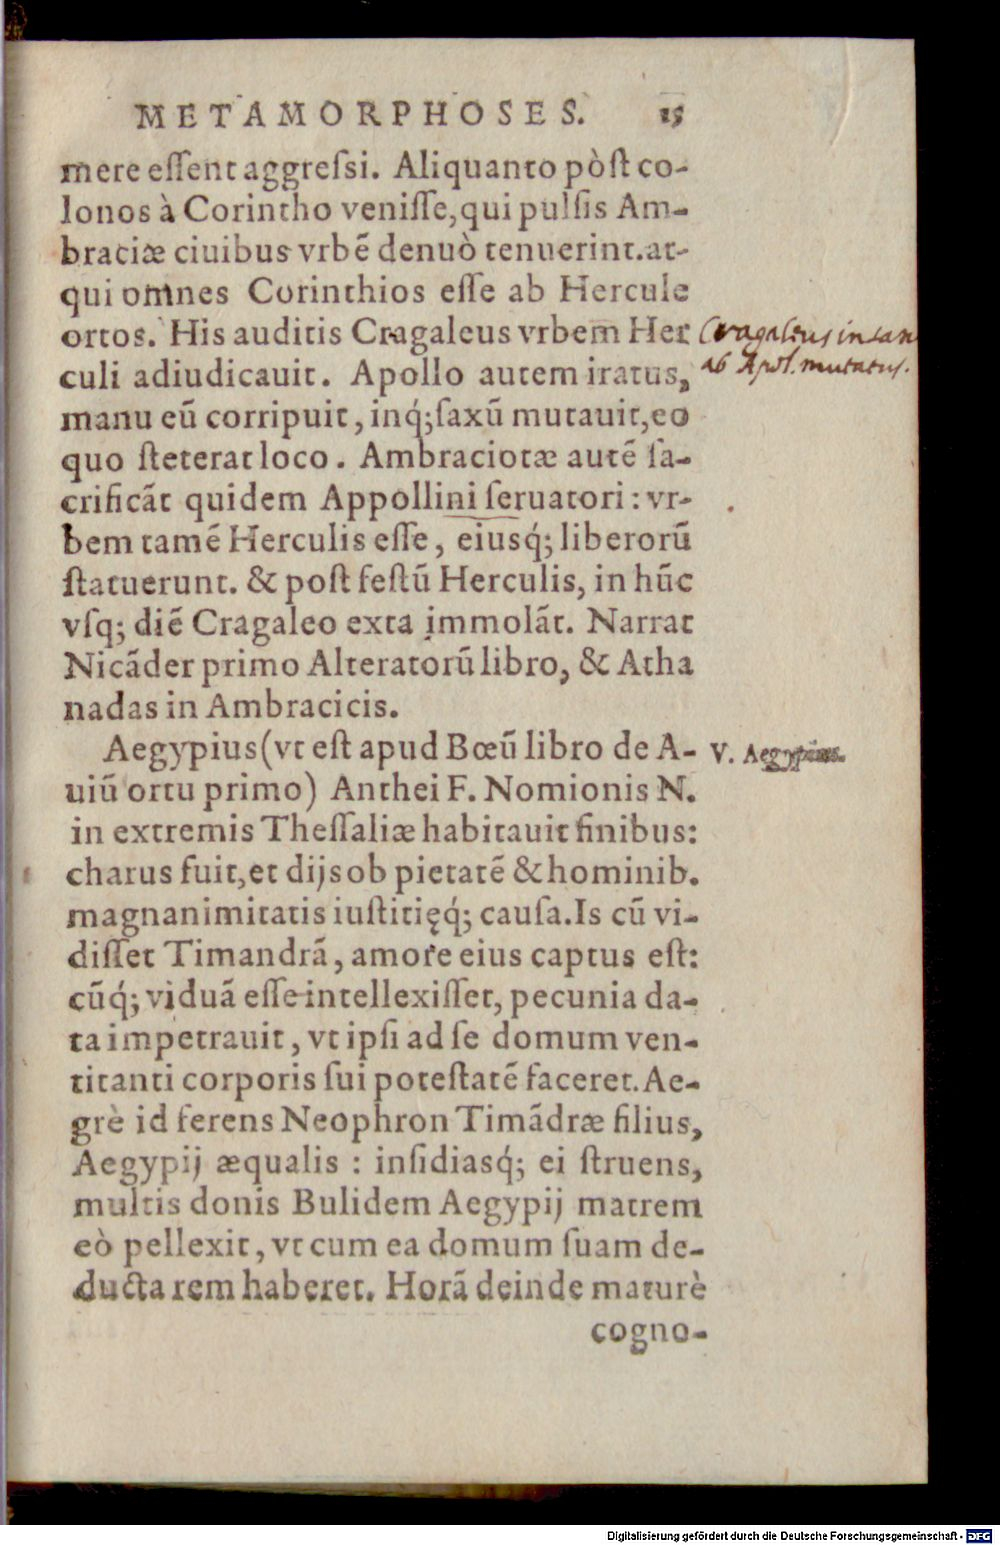 METAMORPHOSES. 15
mere eſſent aggreſsi. Aliquanto pòſt co-
lonos à Corintho veniſſe, qui pulſis Am-
braciæ ciuibus vrbẽ denuò tenuerint. at-
qui omnes Corinthios eſſe ab Hercule
ortos. His auditis Cragaleus vrbem Her
culi adiudicauit. Apollo autem iratus,
manu eũ corripuit, inq́; ſaxũ mutauit, eo
quo ſteterat loco. Ambraciotæ autẽ ſa-
crificãt quidem Appollini ſeruatori: vr-
bem tamẽ Herculis eſſe, eiusq́; liberorũ
ſtatuerunt. & poſt feſtũ Herculis, in hũc
vſq; diẽ Cragaleo exta immolãt. Narrat
Nicãder primo Alteratorũ libro, & Atha
nadas in Ambracicis.
Cragaleus in saxũ
ab Apol. mutatus.
Aegypius (vt eſt apud Bœũ libro de A-
V. Aegypius.
uiũ ortu primo) Anthei F. Nomionis N.
in extremis Theſſaliæ habitauit finibus:
charus fuit, et dijs ob pietatẽ & hominib.
magnanimitatis iuſtitięq́; cauſa. Is cũ vi-
diſſet Timandrã, amore eius captus eſt:
cũq́; viduã eſſe intellexiſſet, pecunia da-
ta impetrauit, vt ipſi ad ſe domum ven-
titanti corporis ſui poteſtatẽ faceret. Ae-
grè id ferens Neophron Timãdræ filius,
Aegypij æqualis: inſidiasq́; ei ſtruens,
multis donis Bulidem Aegypij matrem
eò pellexit, vt cum ea domum ſuam de-
ducta rem haberet. Horã deinde maturè
cogno-
Digitalisierung gefördert durch die Deutsche Forschungsgemeinschaft - DFG